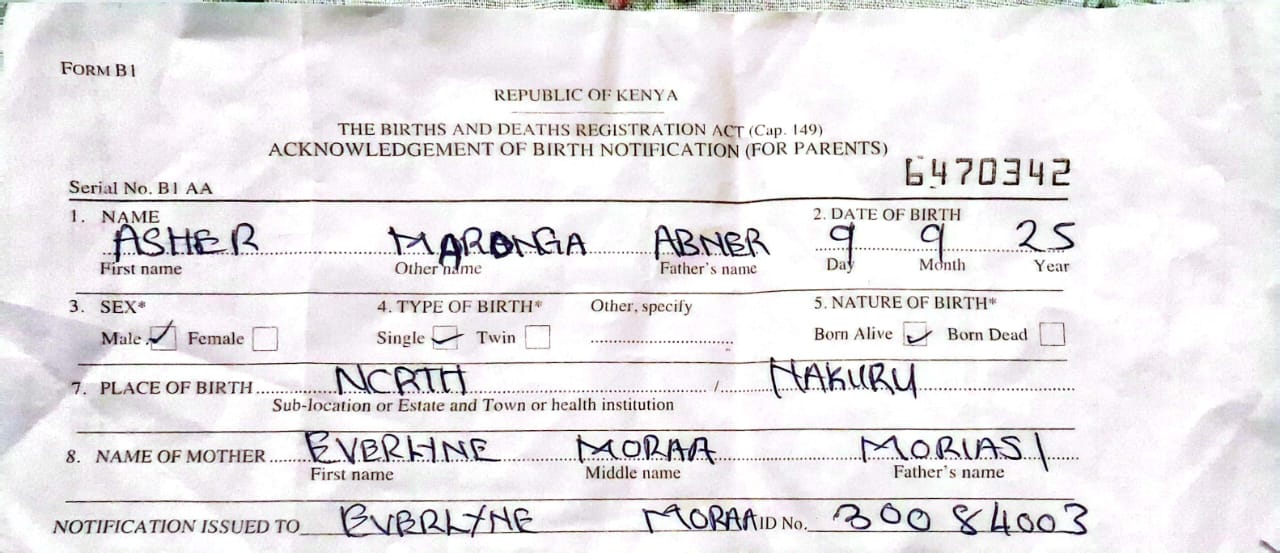 FORM B1
REPUBLIC OF KENYA
THE BIRTHS AND DEATHS REGISTRATION ACT (Cap. 149)
ACKNOWLEDGEMENT OF BIRTH NOTIFICATION (FOR PARENTS)
Serial No. B1 AA 6470342
1. NAME 2. DATE OF BIRTH
ASHER MARONGA ABNER 9 9 25
First name Other name Father's name Day Month Year
3. SEX* 4. TYPE OF BIRTH* Other, specify 5. NATURE OF BIRTH*
Male Female Single Twin Born Alive Born Dead
7. PLACE OF BIRTH NCRTH / NAKURU
Sub-location or Estate and Town or health institution
8. NAME OF MOTHER EVERLYNE MORAA MORIASI
First name Middle name Father's name
NOTIFICATION ISSUED TO EVERLYNE MORAA ID No. 30084003